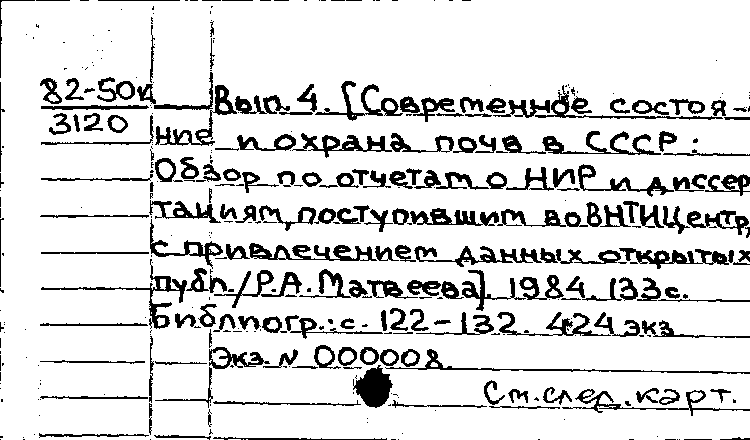 82-50к Вып. 4. [Современное состоя-
3120 ние и охрана почв в СССР:
Обзор по отчетам о НИР и диссер
тациям, поступившим во ВНТИЦентр,
с привлечением данных открытых
публ./Р.А. Матвеева]. 1984. 133с.
Библиогр.: с. 122-132. 424 экз
Экз. N 000008.
См. след. карт.